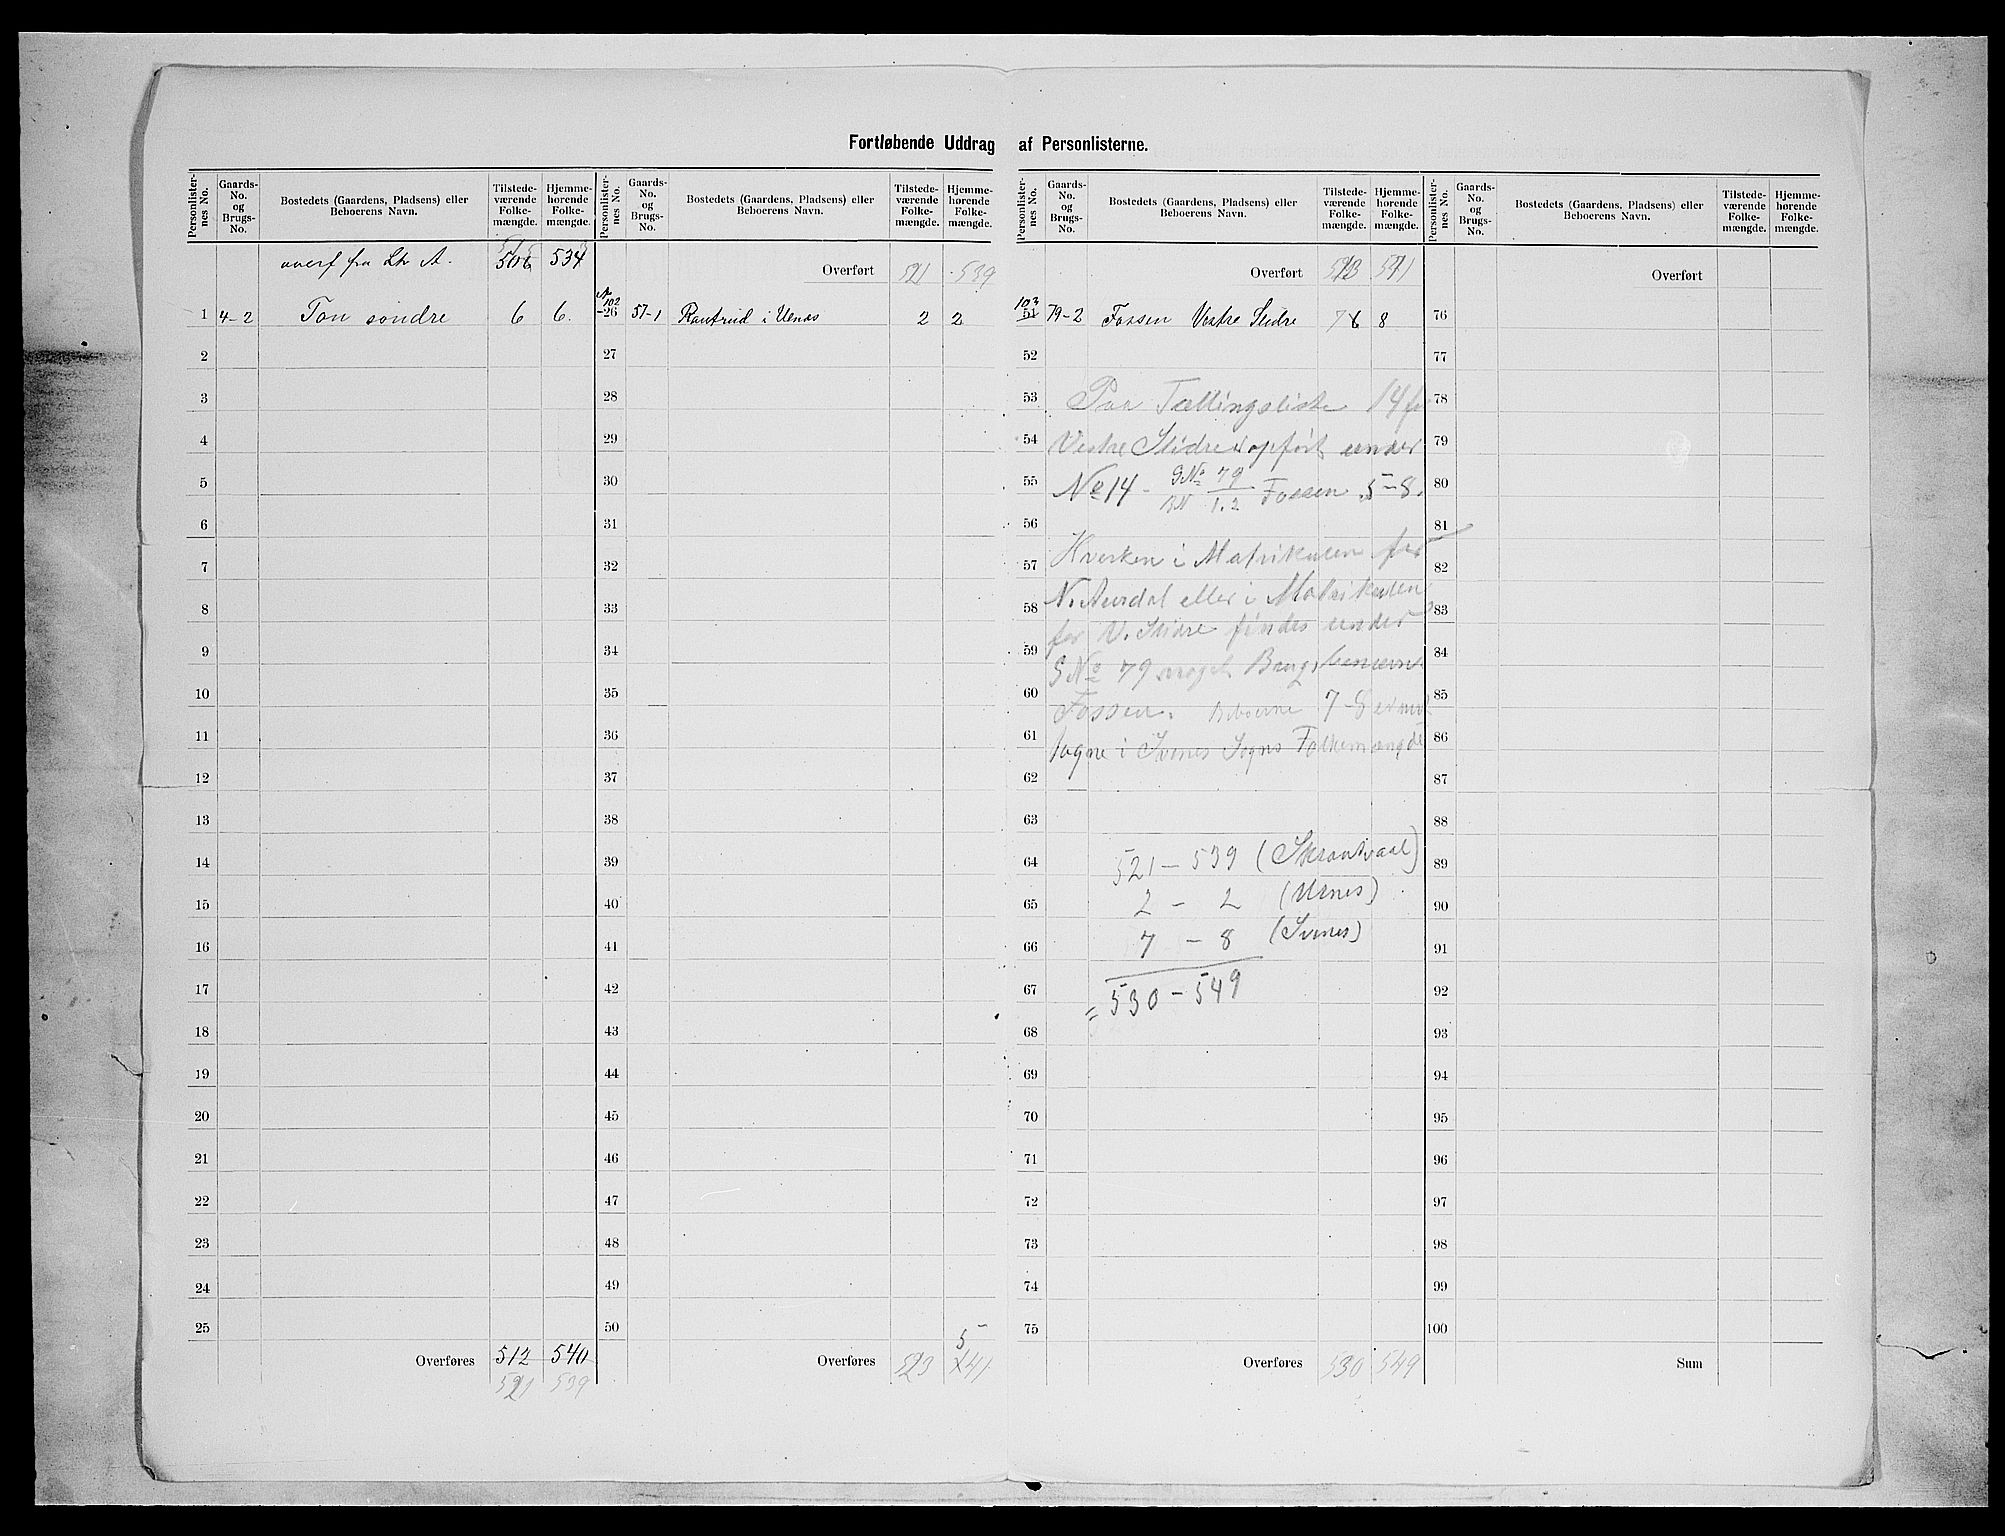 Fortløbende Uddrag af Personlisterne.
Personlister-nes No. | Gaards-No. og Brugs-No. | Bostedets (Gaardens, Pladsens) eller Beboerens Navn. | Tilstede-værende Folke-mængde. | Hjemme-hørende Folke-mængde.
overf fra Lit A. 534
1 4-2 Ton søndre 6 6.
2
3
4
5
6
7
8
9
10
11
12
13
14
15
16
17
18
19
20
21
22
23
24
25
Overføres 512 540
521 539
Personlister-nes No. | Gaards-No. og Brugs-No. | Bostedets (Gaardens, Pladsens) eller Beboerens Navn. | Tilstede-værende Folke-mængde. | Hjemme-hørende Folke-mængde.
Overført 521 539
No 102
26 57-1 Rantrud i Ulnæs 2 2
27
28
29
30
31
32
33
34
35
36
37
38
39
40
41
42
43
44
45
46
47
48
49
50
5
Overføres 523 41
Personlister-nes No. | Gaards-No. og Brugs-No. | Bostedets (Gaardens, Pladsens) eller Beboerens Navn. | Tilstede-værende Folke-mængde. | Hjemme-hørende Folke-mængde.
Overført 523 541
103
51 79-2 Fossen Vestre Slidre 7 6 8
52
53 Paa Tællingsliste 14 for
54 Vestre Slidre opført under
55 No 14 - GNo 79 BN 1.2 Fossen 5-8.
56
57 Hverken i Matrikulen for
58 N. Aurdal eller i Matrikulen
59 for V. Slidre findes under
60 GNo 79 noget Brug, benævnt
Fossen. Beboerne 7-8 er med
61 tagne i Svenes Sogns Folkemængde
62
63
64 521-539 (Skrautvaal)
65 2 - 2 (Ulnes)
66 7 - 8 (Svenes)
67 = 530-549
68
69
70
71
72
73
74
75
Overføres 530 549
Personlister-nes No. | Gaards-No. og Brugs-No. | Bostedets (Gaardens, Pladsens) eller Beboerens Navn. | Tilstede-værende Folke-mængde. | Hjemme-hørende Folke-mængde.
Overført
76
77
78
79
80
81
82
83
84
85
86
87
88
89
90
91
92
93
94
95
96
97
98
99
100
Sum